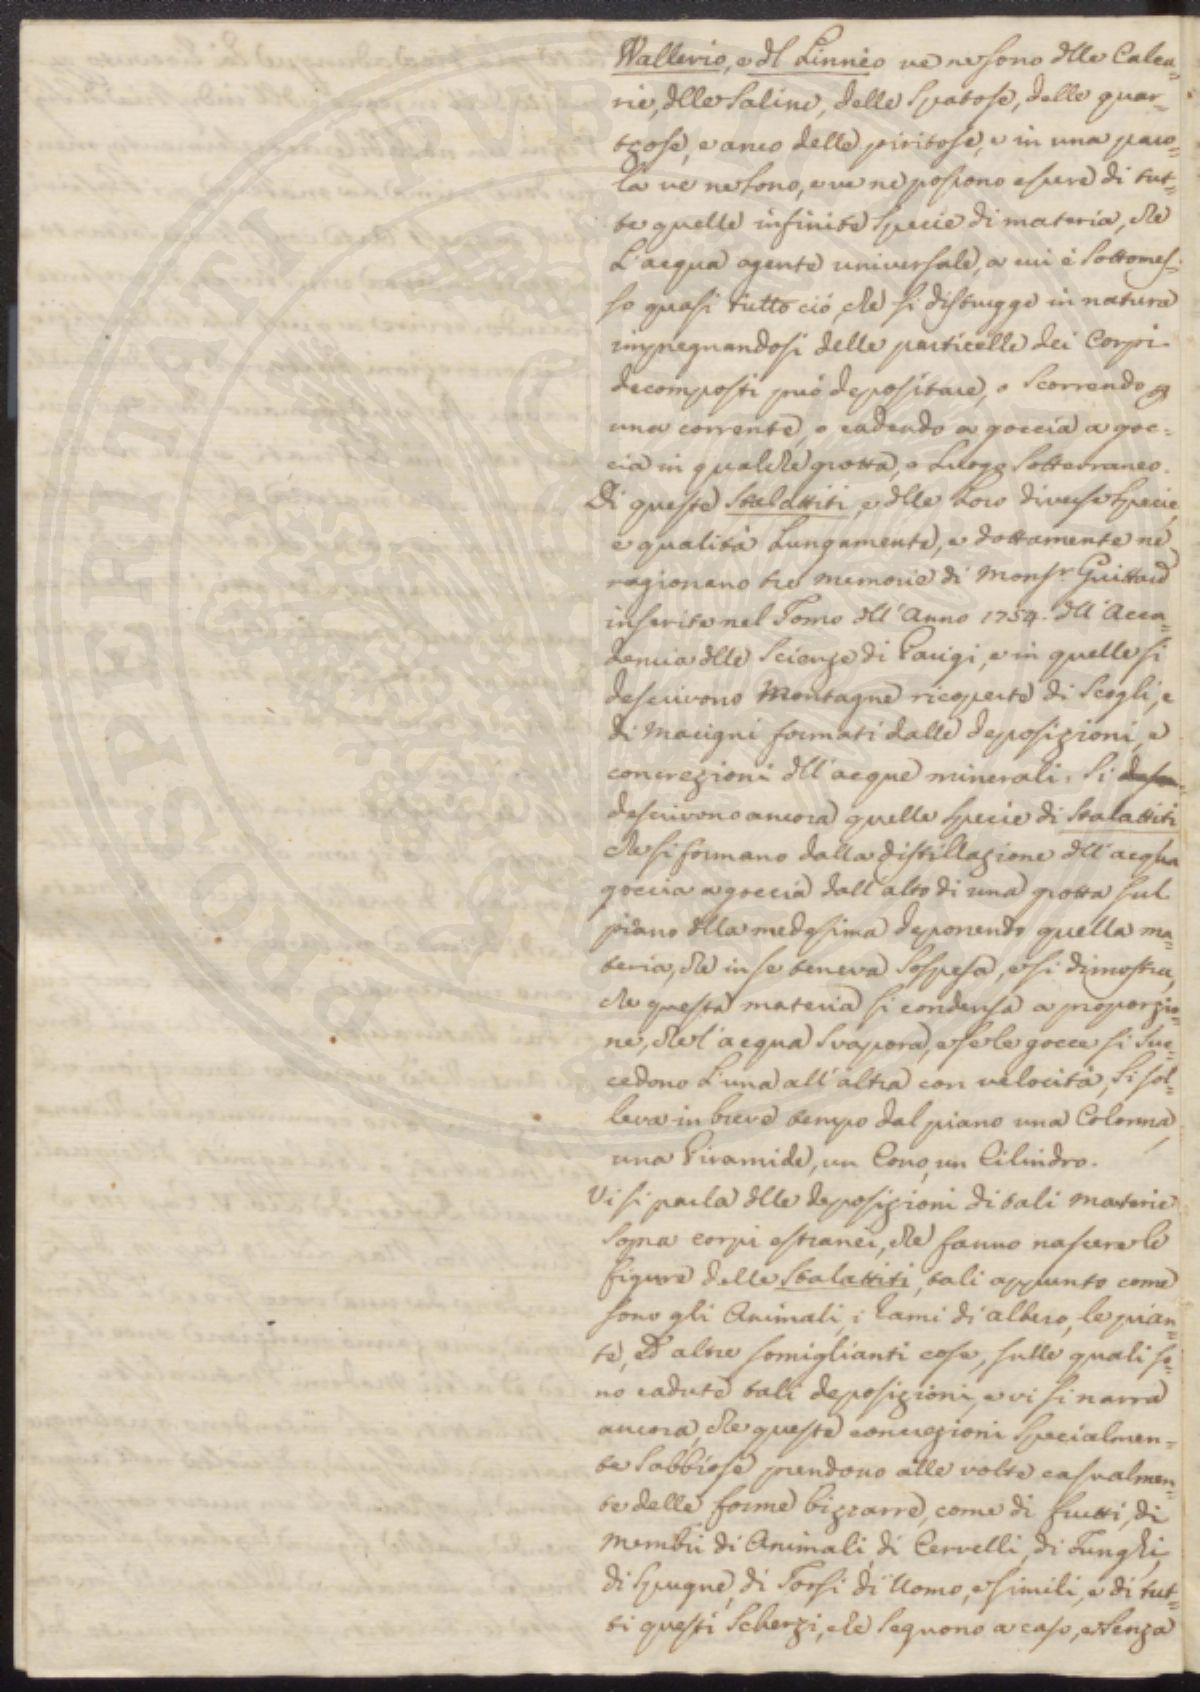 Wallerio, e dl Linnèo ve ne sono dlle Calca=
rie, dlle Saline, delle Spatose, delle quar=
tzose, e anco delle piritose, e in una paro=
la ve ne sono, e ve ne possono essere di tut=
te quelle infinite Specie di materia, che
L'acqua agente universale, a cui è Sottomes=
so quasi tutto ciò, che si distrugge in natura
impregnandosi delle particelle dei Corpi
decomposti può depositare, o Scorrendo
una corrente, o cadendo a goccia a goc=
cia in qualche grotta, o Luogo Sotterraneo.
Di queste Stalattiti, e dlle Loro diverse Specie,
e qualità Lungamente, e dottamente ne
ragionano tre memorie di Monsr. Guittard
inserite nel Tomo dll'Anno 1754. dll'Acca=
demia dlle Scienze di Parigi, e in quelle si
descrivono Montagne ricoperte di Scogli, e
di Macigni formati dalle deposizioni, e
concrezioni dll'acque minerali. Si desc
descrivono ancora quelle Specie di Stalattiti
che si formano dalla distillazione dll'acqua
goccia a goccia dall'alto di una grotta sul
piano dlla medesima deponendo quella ma=
teria, che in se teneva Sospesa, e si dimostra,
che questa materia si condensa a proporzio=
ne, che l'acqua Svapora, e se le gocce si Suc=
cedono L'una all'altra con velocità, Si sol=
leva in breve tempo dal piano una Colonna,
una Piramide, un Cono, un Cilindro.
Vi si parla dlle deposizioni di tali materie
Sopra corpi estranei, che fanno nascere le
figure delle Stalattiti, tali appunto come
sono gli Animali, i Rami di albero, le pian=
te, ed altre somiglianti cose, sulle quali so=
no cadute tali deposizioni, e vi si narra
ancora, che queste concrezioni Specialmen=
te Sabbiose prendono alle volte casualmen=
te delle forme bizzarre, come di frutti, di
Membri di Animali, di Cervelli, di Funghi,
di Spugne, di Torsi di Uomo, e simili, e di tut=
ti questi Scherzi, che Seguono a caso, e Senza
POSSPERITATI PUB